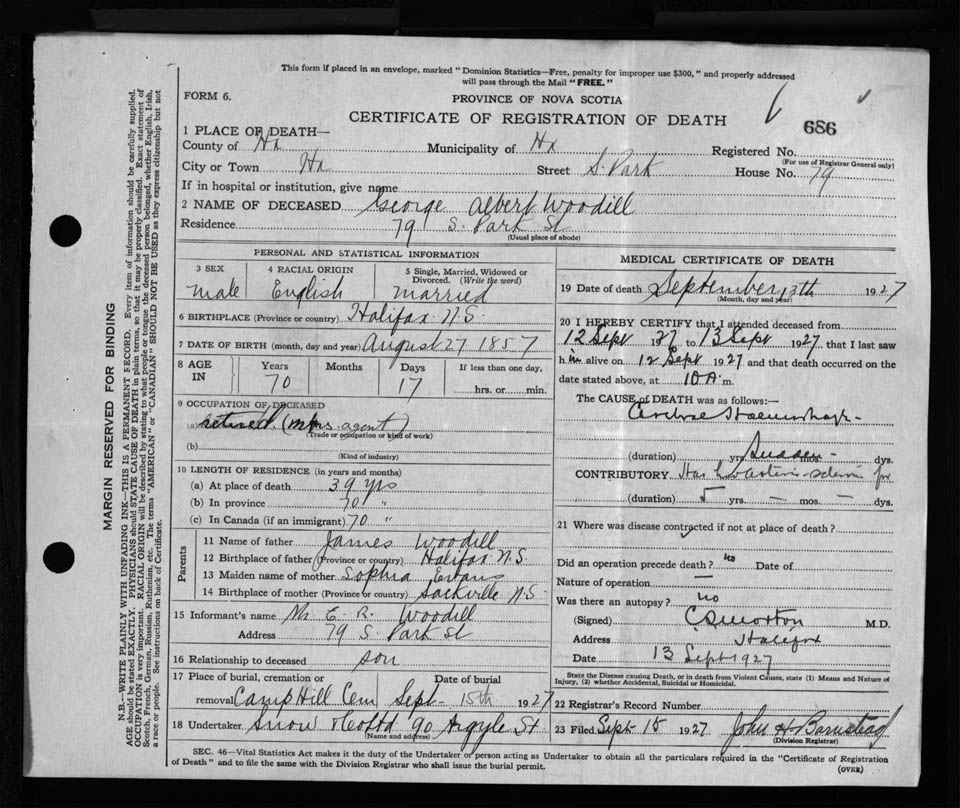 This form if placed in an envelope, marked "Dominion Statistics—Free, penalty for improper use $300," and properly addressed
will pass through the Mail "FREE."
FORM 6.
PROVINCE OF NOVA SCOTIA
CERTIFICATE OF REGISTRATION OF DEATH
686
1 PLACE OF DEATH—
County of Hx Municipality of Hx Registered No.
(For use of Registrar General only)
City or Town Hx Street S. Park House No. 79
If in hospital or institution, give name
2 NAME OF DECEASED George Albert Woodill
Residence 79 S. Park St
(Usual place of abode)
PERSONAL AND STATISTICAL INFORMATION
3 SEX 4 RACIAL ORIGIN 5 Single, Married, Widowed or
Divorced. (Write the word)
Male English Married
6 BIRTHPLACE (Province or country) Halifax N.S.
7 DATE OF BIRTH (month, day and year) August 27 1857
8 AGE IN Years Months Days If less than one day,
70 17 hrs. or min.
9 OCCUPATION OF DECEASED
(a) retired (mfrs. agent)
(Trade or occupation or kind of work)
(b)
(Kind of industry)
10 LENGTH OF RESIDENCE (in years and months)
(a) At place of death 39 yrs
(b) In province 70 "
(c) In Canada (if an immigrant) 70 "
Parents
11 Name of father James Woodill
12 Birthplace of father (Province or country) Halifax N.S.
13 Maiden name of mother Sophia Evans
14 Birthplace of mother (Province or country) Sackville N.S.
15 Informant's name Mr E. R. Woodill
Address 79 S Park St
16 Relationship to deceased son
17 Place of burial, cremation or Date of burial
removal Camp Hill Cem Sept 15th 1927
18 Undertaker Snow & Co Ltd 90 Argyle St
(Name and address)
MEDICAL CERTIFICATE OF DEATH
19 Date of death September 13th 1927
(Month, day and year)
20 I HEREBY CERTIFY that I attended deceased from
12 Sept 1927 to 13 Sept 1927 that I last saw
him alive on 12 Sept 1927 and that death occurred on the
date stated above, at 10 A m.
The CAUSE of DEATH was as follows:—
(duration) Sudden yrs. mos. — dys.
CONTRIBUTORY. Has for
(duration) 5 yrs. — mos. — dys.
21 Where was disease contracted if not at place of death?
Did an operation precede death? no Date of
Nature of operation —
Was there an autopsy? no
(Signed) C S Morton M.D.
Address Halifax
Date 13 Sept 1927
State the Disease causing Death, or in death from Violent Causes, state (1) Means and Nature of
Injury, (2) whether Accidental, Suicidal or Homicidal.
22 Registrar's Record Number
23 Filed Sept 15 1927 John H Barnstead
(Division Registrar)
SEC. 46—Vital Statistics Act makes it the duty of the Undertaker or person acting as Undertaker to obtain all the particulars required in the "Certificate of Registration
of Death" and to file the same with the Division Registrar who shall issue the burial permit.
(OVER)
MARGIN RESERVED FOR BINDING
N.B.—WRITE PLAINLY WITH UNFADING INK—THIS IS A PERMANENT RECORD. Every item of information should be carefully supplied.
AGE should be stated EXACTLY. PHYSICIANS should STATE CAUSE OF DEATH in plain terms, so that it may be properly classified. Exact statement of
OCCUPATION is very important. RACIAL ORIGIN will be described by stating to what people or tongue the deceased person belonged, whether English, Irish,
Scotch, French, German, Russian, Ruthenian, etc. The terms "AMERICAN" or "CANADIAN" SHOULD NOT BE USED as they express citizenship but not
a race or people. See instructions on back of Certificate.